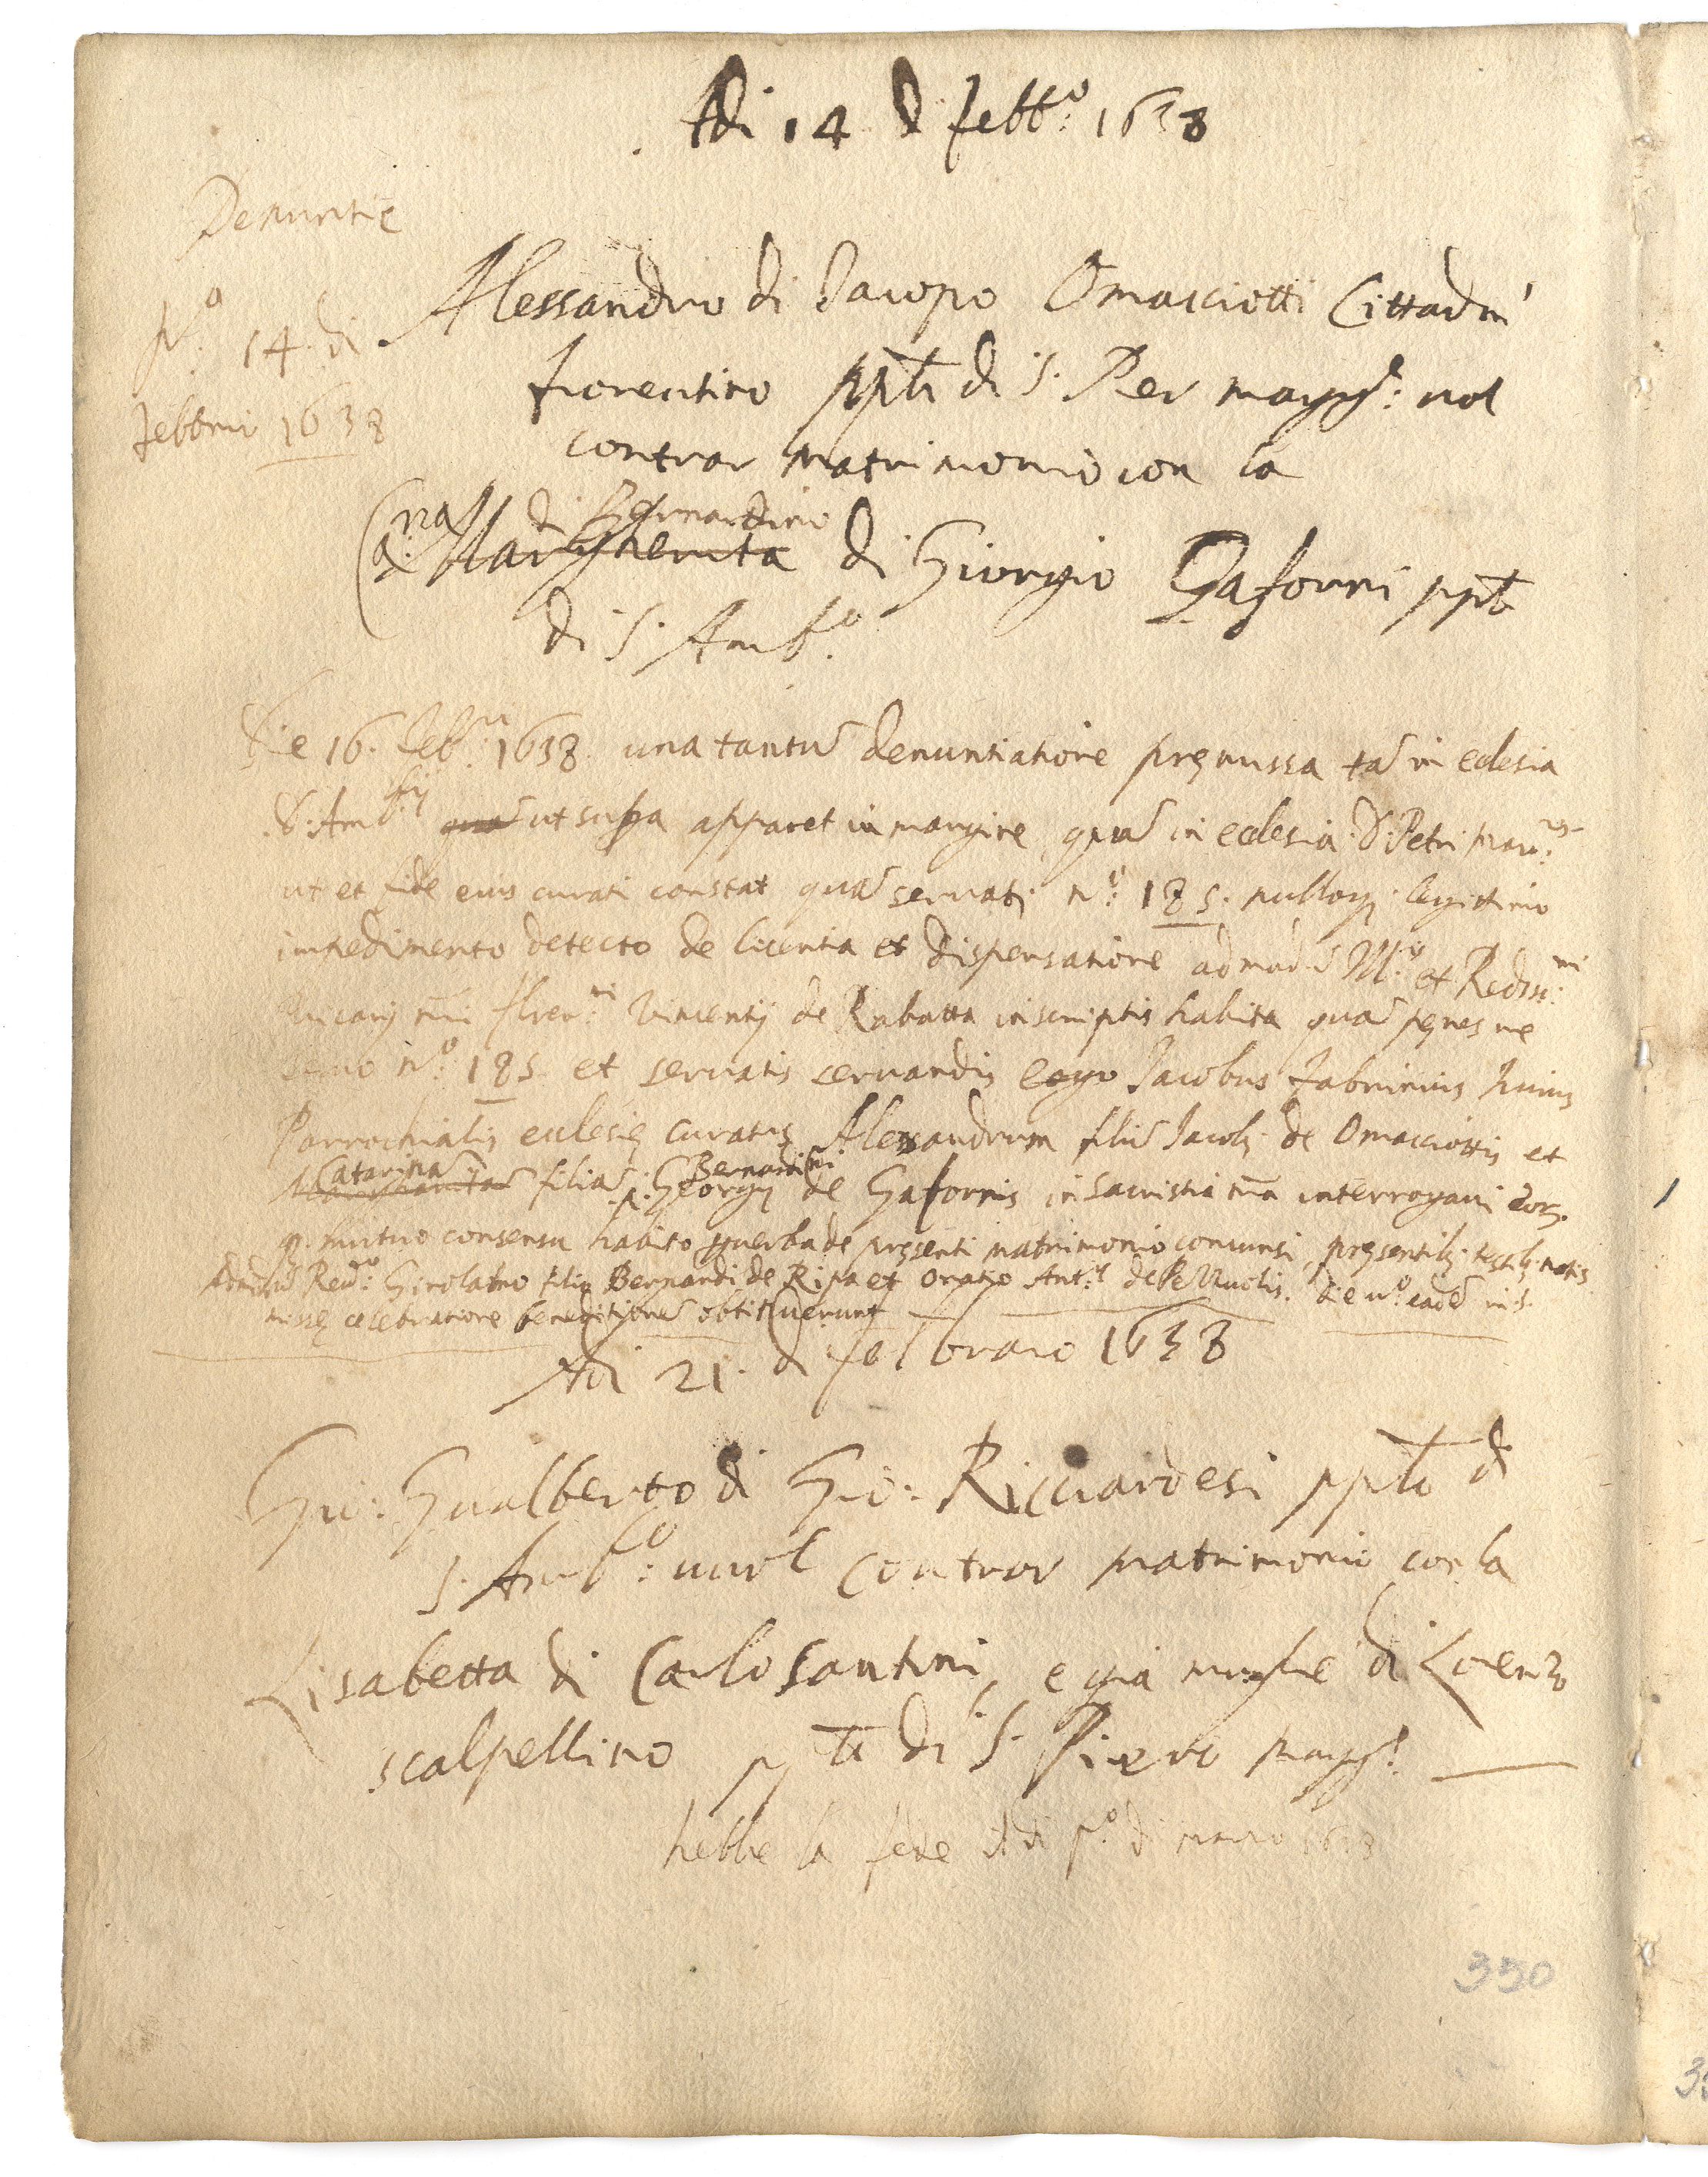 Adi 14 d febb.o: 1638
Denuntie
P.o 14 di
febbrio 1638
Alessandro di Jacopo Omacciotti Cittadin
fiorentino ppli di S. Pier magg.e: vol
contrar matrimonio con la
Ca:na di Bernardino
Margherita di Giorgio Gaforri ppl
di S. Amb.o
Die 16. feb.rii 1638. una tantu denuntiatione premissa ta in eclesia
S. Amb.sii qua ut supa apparet in margine, qua in eclesia S. Petri
ut et fide eius curati constat qua servati N.o 185. nulloq. legittimo
impedimento detecto de licentia et dispensatione admodu M. et Rediss.mi
Vicarij nri flren.ni Vincentij de Rabatta in scriptis habita qua penes me
servo N.o 185 et servatis servandis ego Jacobus fabrinius huius
Parrochialis eclesie curatus Alessandrum filiu Jacobi de Omacciottis et
Catarina Bernardini
Margharita filia p. Georgij de Gaforris in sacristia mea interrogavi eor.
q. mutuo consensu habito p verba de presenti matrimonio coniunsi, presentib. testib. notis
Admodu Rev.do: Girolamo filio Bernardi de Ripa et Oratio Ant.i de die v.o eade in S.
misse celebratione beneditione obtituerunt
Adi 21. d febbraio 1638
Gio: Gualberto di Gio: Ricciardesi pplo d
S. Amb.o: vuol contrar matrimonio con la
Lisabetta di Carlo Santini, e gia moglie di Lorenzo
scalpellino ppli di S. Piero magg.e
hebbe la fede Adi p.o d marzo 1638
350